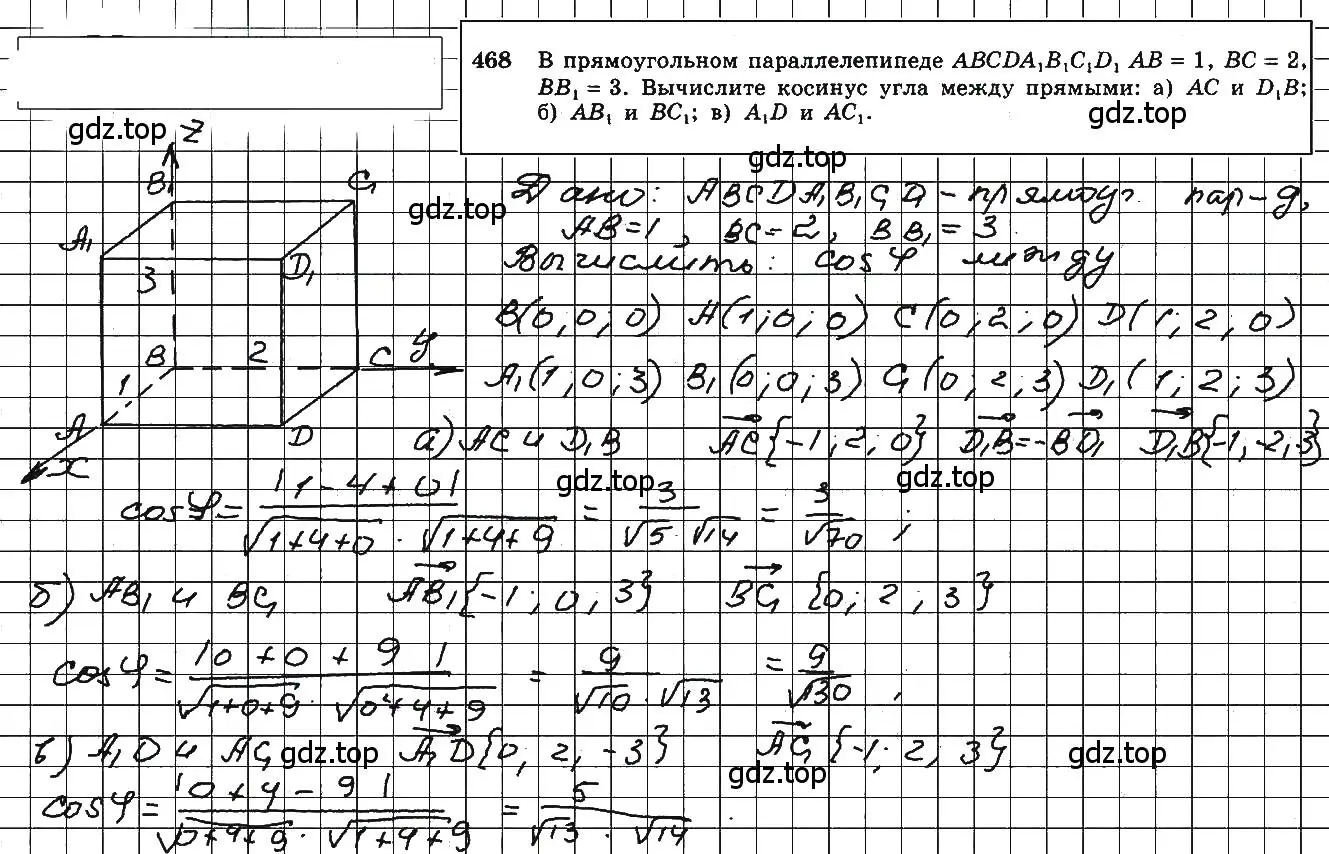 468 В прямоугольном параллелепипеде ABCDA₁B₁C₁D₁ AB = 1, BC = 2,
BB₁ = 3. Вычислите косинус угла между прямыми: а) AC и D₁B;
б) AB₁ и BC₁; в) A₁D и AC₁.
gdz.top
gdz.top
gdz.top
gdz.top
Z
B₁ C₁
A₁ D₁
3
B 2 C y
1
A D
x
Дано: ABCDA₁B₁C₁D₁ - прямоуг. пар-д,
AB=1, BC=2, BB₁=3
Вычислить: cos φ между
B(0; 0; 0) A(1; 0; 0) C(0; 2; 0) D(1; 2; 0)
A₁(1; 0; 3) B₁(0; 0; 3) C₁(0; 2; 3) D₁(1; 2; 3)
а) AC и D₁B AC{-1; 2; 0} D₁B=-BD₁ D₁B{-1; -2; -3}
gdz.top gdz.top
cos φ = |1-4+0| / √1+4+0 · √1+4+9 = 3 / √5 · √14 = 3 / √70 ;
б) AB₁ и BC₁ AB₁{-1; 0; 3} BC₁{0; 2; 3}
cos φ = |0+0+9| / √1+0+9 · √0+4+9 = 9 / √10 · √13 = 9 / √130 ;
в) A₁D и AC₁ A₁D{0; 2; -3} AC₁{-1; 2; 3}
gdz.top gdz.top gdz.top
cos φ = |0+4-9| / √0+4+9 · √1+4+9 = 5 / √13 · √14